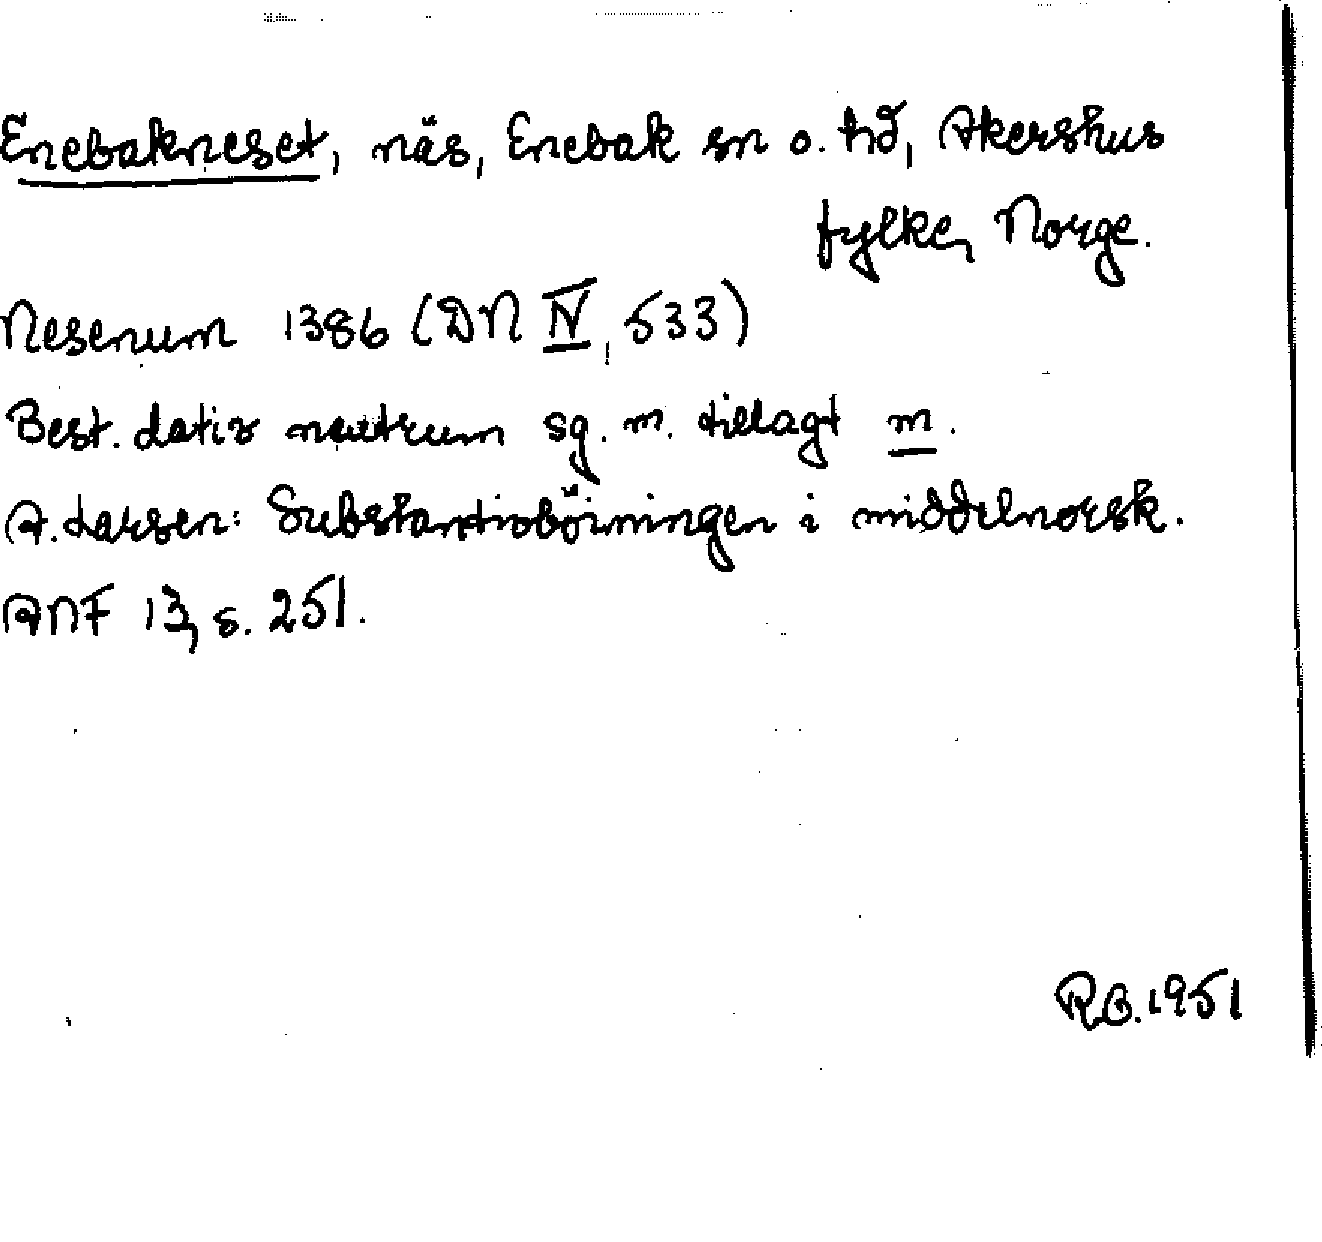 Enebakneset, näs, Enebak sn o. hd, Akershus
fylke, Norge.
Nesenum 1386 (DN IV, 533)
Best. dativ neutrum sg. m. tillagt m.
A. Larsen: Substantivböiningen i middelnorsk.
ANF 13, s. 251.
RB. 1951